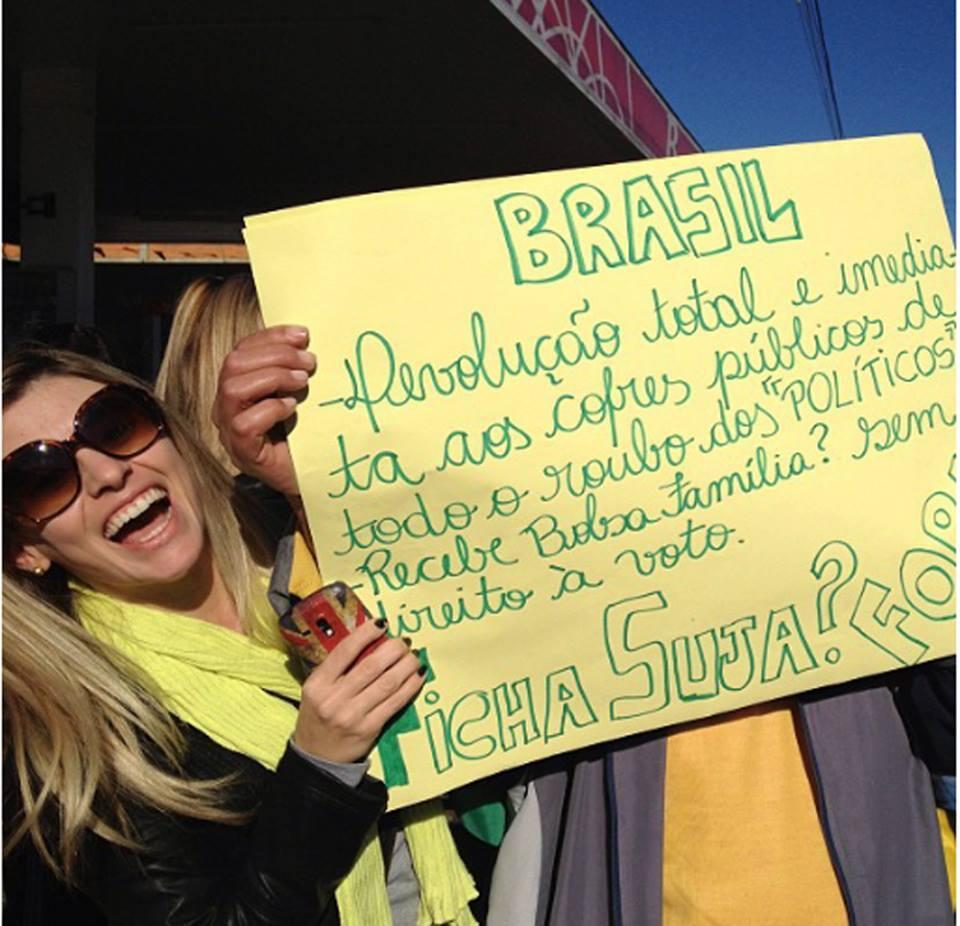 BRASIL
-Devolução total e imedia-
ta aos cofres públicos de
todo o roubo dos "POLÍTICOS"
-Recebe Bolsa Família? sem
direito à voto.
FICHA SUJA? FORA